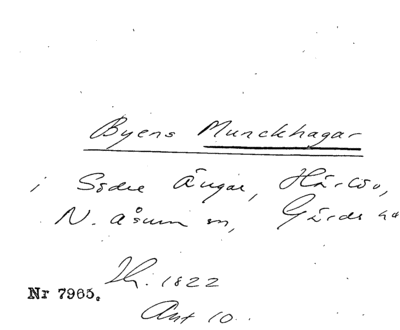 Byens Munckhagar
i Södre Ängar, Härlöv,
N. Åsum sn, Gärds hd
Lh. 1822
Nr 7965.
Akt 10